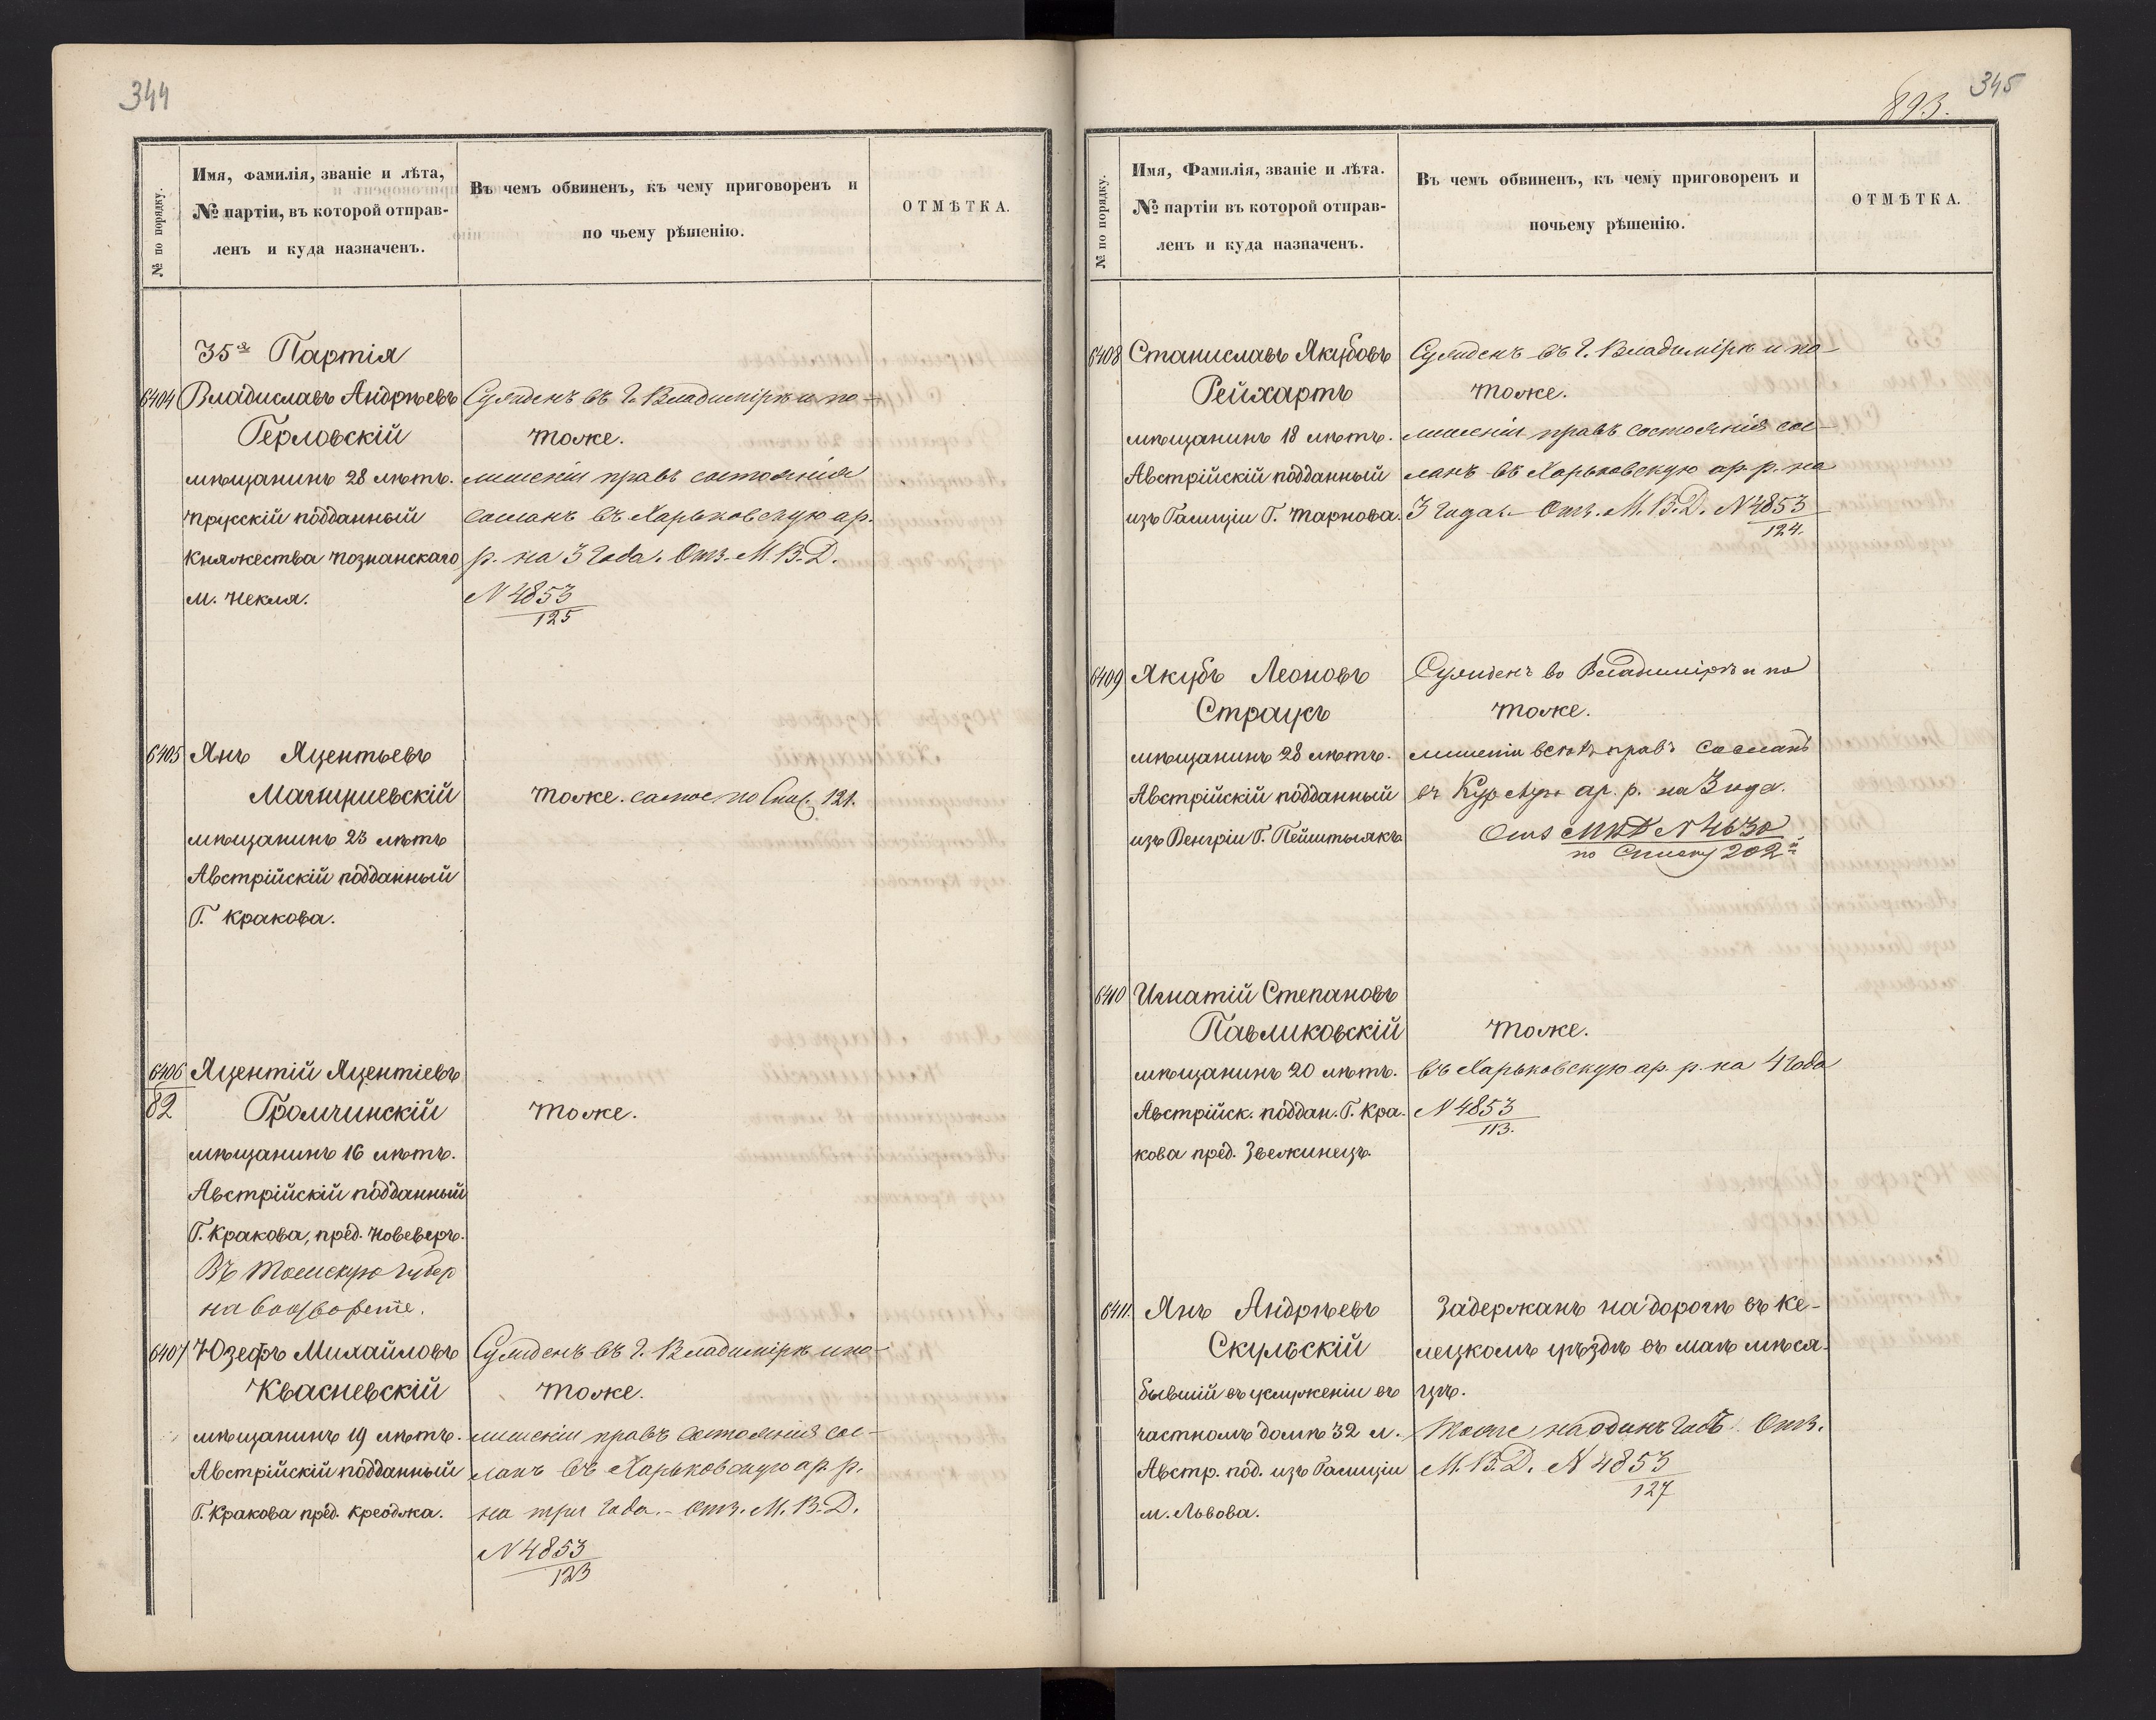 344
№ по порядку.
Имя, фамилія, званіе и лѣта,
№ партіи, въ которой отправ-
ленъ и куда назначенъ.
Въ чемъ обвиненъ, къ чему приговоренъ и
по чьему рѣшенію.
ОТМѢТКА.
35я Партія
6404 Владиславъ Андрѣевъ
Герловскій
мѣщанинъ 28 лѣтъ.
прусскій подданный
княжества познанскаго
м. Некля.
Сужденъ въ г. Владимірѣ и по-
тоже.
лишеніи правъ состоянія
сосланъ въ Харьковскую ар.
р. на 3 года. Отз. М.В.Д.
N 4853
125
6405 Янъ Яцентьевъ
мѣщанинъ 23 лѣтъ
Австрійскій подданный
Г. Кракова.
тоже. самое по Спис. 121.
6406
82
Яцентій Яцентіевъ
Громчинскій
мѣщанинъ 16 лѣтъ.
Австрійскій подданный
Г. Кракова, пред. Новеверъ.
Въ Томскую губер
на
тоже.
6407 Юзефъ Михайловъ
Квасневскій
мѣщанинъ 19 лѣтъ.
Австрійскій подданный
Г. Кракова пред. Креоджа.
Сужденъ въ г. Владимірѣ и по-
тоже.
лишеніи правъ состоянія сос-
ланъ въ Харьковскую ар. р.
на три года.- Отз. М.В.Д.
N 4853
123
345
893.
№ по порядку.
Имя, Фамилія, званіе и лѣта.
№ партіи въ которой отправ-
ленъ и куда назначенъ.
Въ чемъ обвиненъ, къ чему приговоренъ и
почьему рѣшенію.
ОТМѢТКА.
6408 Станиславъ Якубовъ
Рейхартъ
мѣщанинъ 18 лѣтъ.
Австрійскій подданный
изъ Галиціи Г. Тарнова.
Сужденъ въ г. Владимірѣ и по-
тоже.
лишеніи правъ состоянія сос-
ланъ въ Харьковскую ар. р. на
3 года.- Отз. М.В.Д. N 4853
124.
6409 Якубъ Леоновъ
Страукъ
мѣщанинъ 28 лѣтъ.
Австрійскій подданный
изъ Венгріи Г. Пейштылякъ
Сужденъ во Владимірѣ и по
тоже.
лишеніи всѣхъ правъ сосланъ
въ ар. р. на 3 года.
Отз МВД N 4630
по Списку 202й
6410 Игнатій Степановъ
Павликовскій
мѣщанинъ 20 лѣтъ.
Австрійск. поддан. Г. Кра-
кова пред. Звежинецъ.
тоже.
въ Харьковскую ар. р. на 4 года
N 4853
113.
6411. Янъ Андрѣевъ
Скульскій
бывшій въ услуженіи въ
частномъ домѣ 32 л.
Австр. под. изъ Галиціи
м. Львова.
Задержанъ на дорогѣ въ Ке-
лецкомъ уѣздѣ въ маѣ мѣся-
цѣ.
Тоже на одинъ годъ. Отз.
М.В.Д. N 4853
127